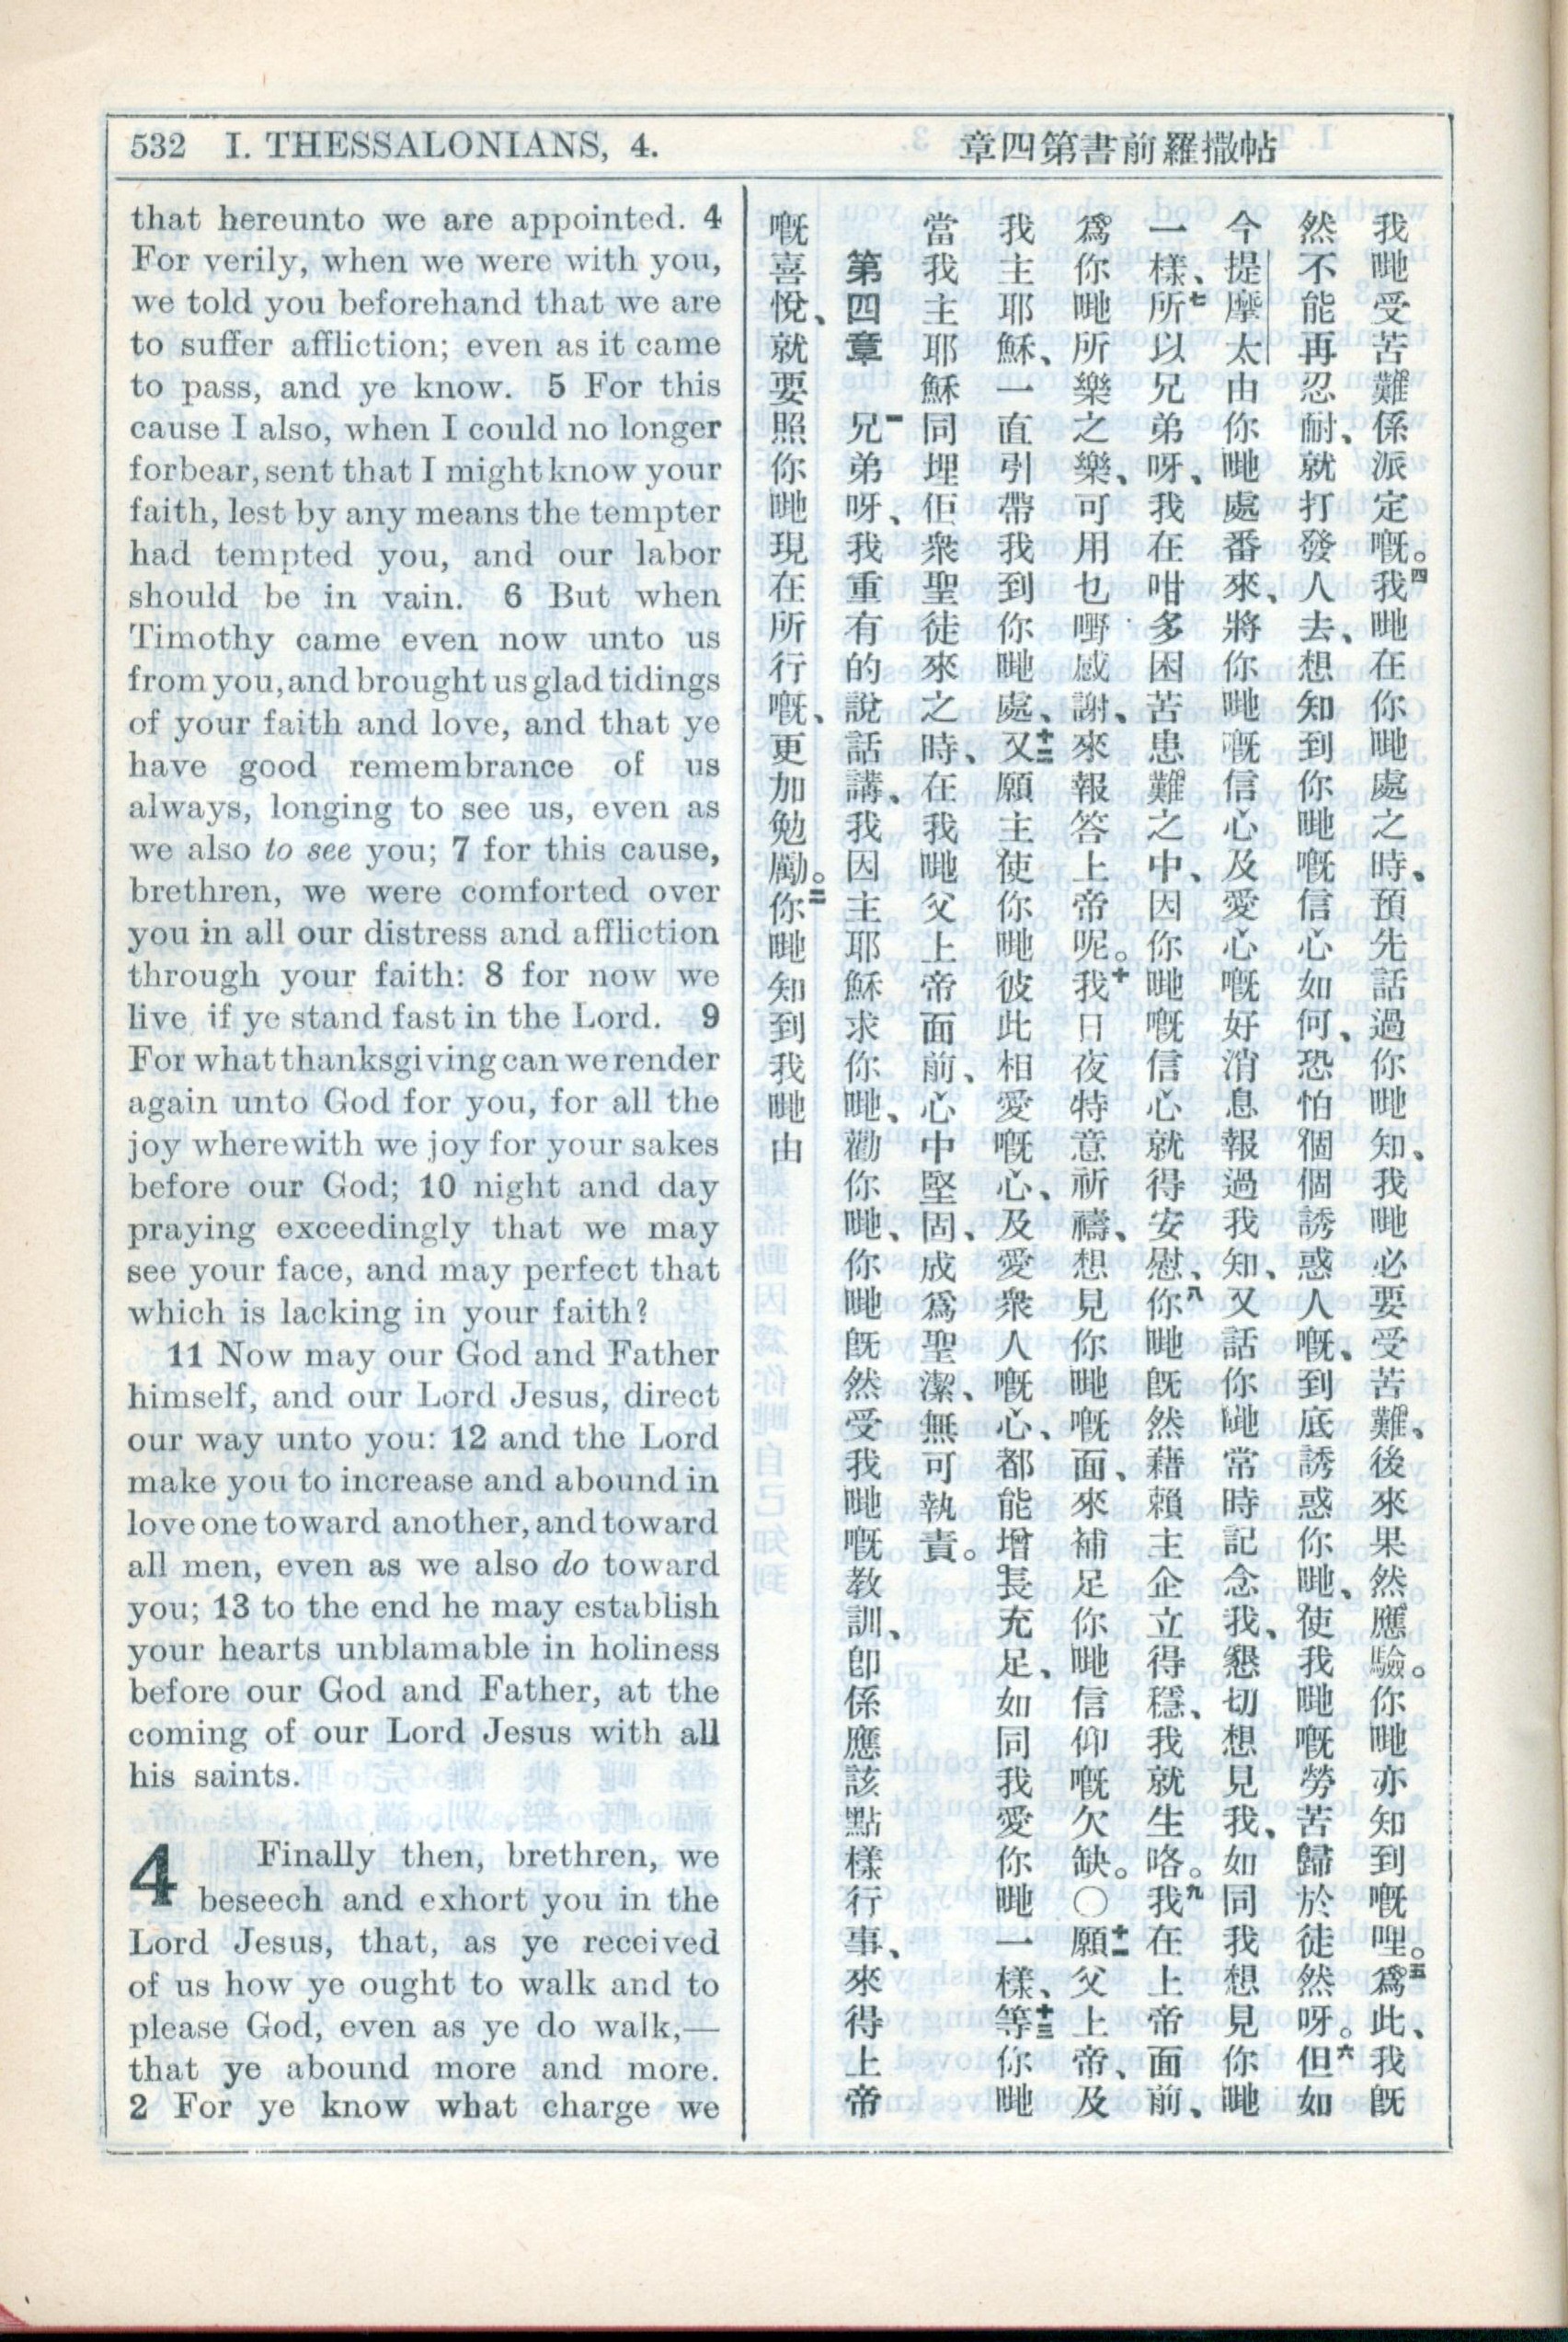 532 I. THESSALONIANS, 4.
章四第書前羅撒帖
that hereunto we are appointed. 4
For verily, when we were with you,
we told you beforehand that we are
to suffer affliction; even as it came
to pass, and ye know. 5 For this
cause I also, when I could no longer
forbear, sent that I might know your
faith, lest by any means the tempter
had tempted you, and our labor
should be in vain. 6 But when
Timothy came even now unto us
from you, and brought us glad tidings
of your faith and love, and that ye
have good remembrance of us
always, longing to see us, even as
we also to see you; 7 for this cause,
brethren, we were comforted over
you in all our distress and affliction
through your faith: 8 for now we
live, if ye stand fast in the Lord. 9
For what thanksgiving can we render
again unto God for you, for all the
joy wherewith we joy for your sakes
before our God; 10 night and day
praying exceedingly that we may
see your face, and may perfect that
which is lacking in your faith?
11 Now may our God and Father
himself, and our Lord Jesus, direct
our way unto you: 12 and the Lord
make you to increase and abound in
love one toward another, and toward
all men, even as we also do toward
you; 13 to the end he may establish
your hearts unblamable in holiness
before our God and Father, at the
coming of our Lord Jesus with all
his saints.
4 Finally then, brethren, we
beseech and exhort you in the
Lord Jesus, that, as ye received
of us how ye ought to walk and to
please God, even as ye do walk,—
that ye abound more and more.
2 For ye know what charge we
我哋受苦難係派定嘅。四我哋在你哋處之時、預先話過你哋知、我哋必要受苦難、後來果然應驗。你哋亦知到嘅哩。五爲此、我旣
然不能再忍耐、就打發人去、想知到你哋嘅信心如何、恐怕個個誘惑人嘅、到底誘惑你哋、使我哋嘅勞苦歸於徒然呀。六但如
今提摩太由你哋處番來、將你哋嘅信心及愛心嘅好消息報過我知、又話你哋常時記念我、懇切想見我、如同我想見你哋
一樣、七所以兄弟呀、我在咁多困苦患難之中、因你哋嘅信心就得安慰、八你哋旣然藉賴主企立得穩、我就生咯。九我在上帝面前、
爲你哋所樂之樂、可用乜嘢感謝、來報答上帝呢。十我日夜特意祈禱、想見你哋嘅面、來補足你哋信仰嘅欠缺。〇十一願父上帝、及
我主耶穌、一直引帶我到你哋處、十二又願主使你哋彼此相愛嘅心、及愛衆人嘅心、都能增長充足、如同我愛你哋一樣、十三等你哋
當我主耶穌同埋佢衆聖徒來之時、在我哋父上帝面前、心中堅固、成爲聖潔、無可執責。
第四章 一兄弟呀、我重有的說話講、我因主耶穌求你哋、勸你哋、你哋旣然受我哋嘅教訓、卽係應該點樣行事、來得上帝
嘅喜悅、就要照你哋現在所行嘅、更加勉勵。二你哋知到我哋由